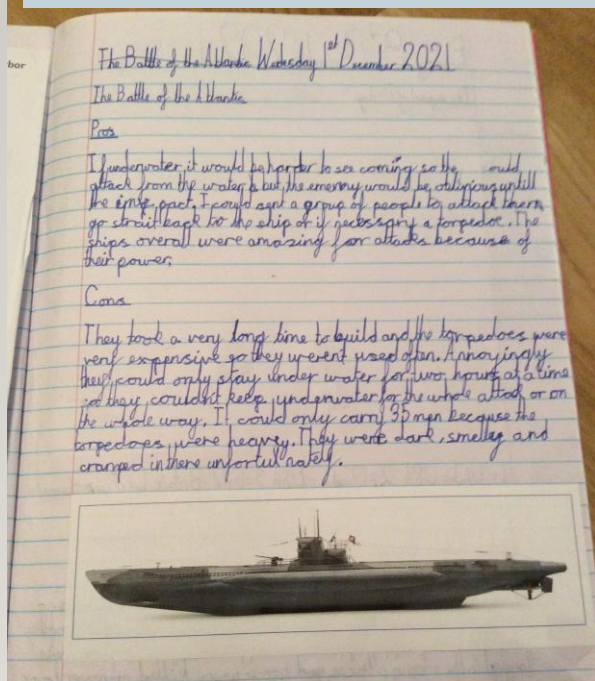 bor
The Battle of the Atlantic Wednesday 1st December 2021
The Battle of the Atlantic
Pros
If underwater, it would be harder to see coming so the ould
attack from the water but the emenny would be untill
the impact. I could sent a group of people to attack them
go strait back to the ship or if necessary a torpedoe. The
ships overall were amazing for attacks because of
their power.
Cons
They took a very long time to build and the torpedoes were
very expensive so they werent used often. Annoyingly
they could only stay under water for two hours at a time
so they couldnt keep underwater for the whole attack or on
the whole way. It could only carry 35 men because the
torpedoes were heavey. They were dark, smelley and
cramped in there unfortuinately.